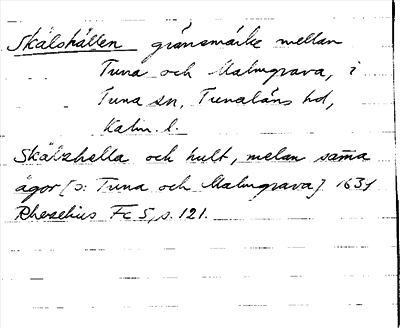 Skälshällen gränsmärke mellan
Tuna och Malmgrava, i
Tuna sn, Tunaläns hd,
Kalm. l.
Skälzhella och hult, melan sama
ägor [ɔ: Tuna och Malmgrava]. 1631
Rhezelius Fc 5, s. 121.